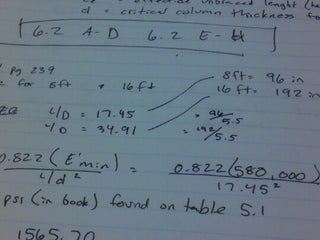 unbraced lenght (he
d = critical column thickness fo
6.2 A-D 6.2 E-H
pg 239
for 8ft & 16ft
8ft = 96 in
16ft = 192 in
L/D = 17.45 = 96/5.5
L/D = 34.91 = 192/5.5
0.822 (E'min) / L/d ² = 0.822 (580,000) / 17.45²
pss (in book) found on table 5.1
1565.70